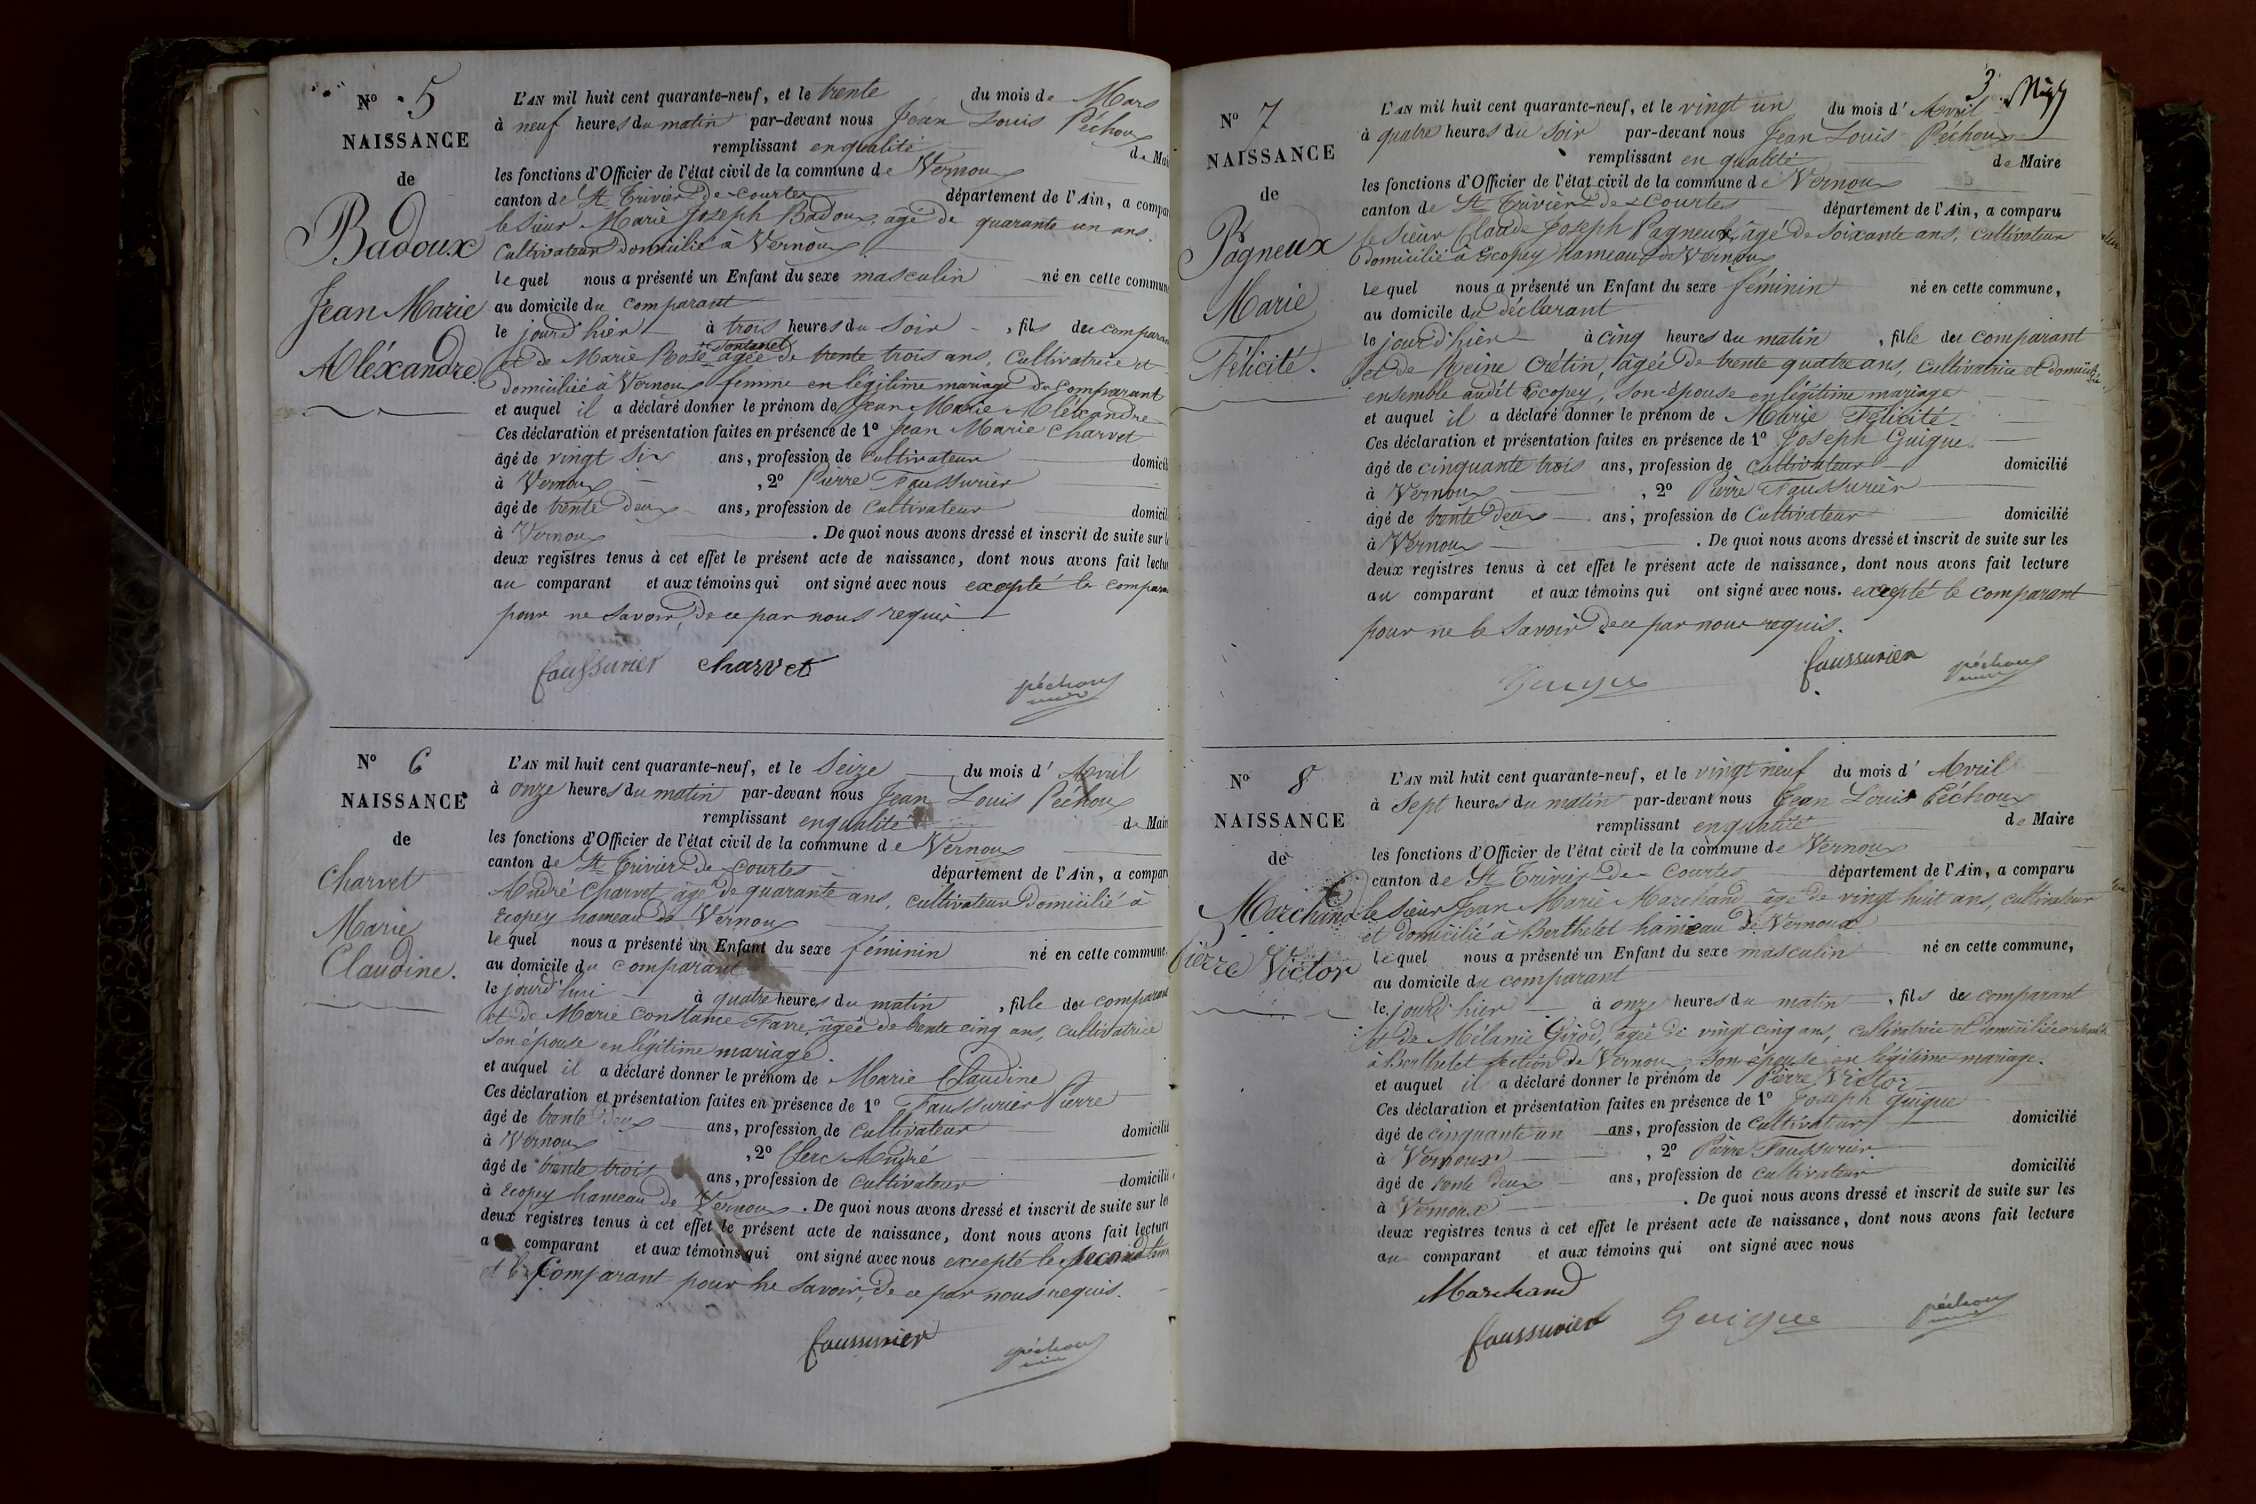 N° 5
NAISSANCE
de
Badoux
Jean Marie
Aléxandre
L'AN mil huit cent quarante-neuf, et le trente du mois de Mars
à neuf heures du matin par-devant nous Jean Louis Péchoux
remplissant en qualité de Mai
les fonctions d'Officier de l'état civil de la commune de Vernoux
canton de St Trivier de Courtes département de l'Ain, a compar
le sieur Marie Joseph Badoux, âgé de quarante un ans.
Cultivateur domicilié à Vernoux
le quel nous a présenté un Enfant du sexe masculin né en cette commun
au domicile du comparant
le jourd'hier à trois heures du soir, fils du comparant
et de Marie Rose Fontanel âgée de trente trois ans, Cultivatrice et
domiciliée à Vernoux femme en légitime mariage du comparant
et auquel il a déclaré donner le prénom de Jean Marie Aléxandre
Ces déclaration et présentation faites en présence de 1° Jean Marie Charvet
âgé de vingt six ans, profession de Cultivateur domicili
à Vernoux , 2° Pierre Faussurier
âgé de trente deux ans, profession de Cultivateur domicil
à Vernoux . De quoi nous avons dressé et inscrit de suite sur l
deux registres tenus à cet effet le présent acte de naissance, dont nous avons fait lectur
au comparant et aux témoins qui ont signé avec nous excepté le compara
pour ne savoir, de ce par nous requis
faussurier charvet
péchoux
N° 6
NAISSANCE
de
Charvet
Marie
Claudine.
L'AN mil huit cent quarante-neuf, et le Seize du mois d' Avril
à onze heures du matin par-devant nous Jean Louis Péchoux
remplissant en qualité de Mair
les fonctions d'Officier de l'état civil de la commune de Vernoux
canton de St Trivier de Courtes département de l'Ain, a compar
André Charvet âgé de quarante ans, cultivateur domicilié à
Ecopey hameau de Vernoux
le quel nous a présenté un Enfant du sexe féminin né en cette commune,
au domicile du comparant
le jourd'hui à quatre heures du matin , fille du comparant
et de Marie Constance Favre, âgée de trente cinq ans, cultivatrice
son épouse en légitime mariage.
et auquel il a déclaré donner le prénom de Marie Claudine
Ces déclaration et présentation faites en présence de 1° Faussurier Pierre
âgé de trente deux ans, profession de Cultivateur domicilié
à Vernoux , 2° Clerc André
âgé de trente trois ans, profession de Cultivateur domicilié
à Ecopey hameau de Vernoux . De quoi nous avons dressé et inscrit de suite sur les
deux registres tenus à cet effet le présent acte de naissance, dont nous avons fait lecture
a comparant et aux témoins qui ont signé avec nous excepté le second
et le Comparant pour ne savoir, de ce par nous requis.
faussurier
péchoux
3
N° 7
NAISSANCE
de
Pagneux
Marie
Félicité.
L'AN mil huit cent quarante-neuf, et le vingt un du mois d' Avril
à quatre heures du soir par-devant nous Jean Louis Péchoux
remplissant en qualité de Maire
les fonctions d'Officier de l'état civil de la commune de Vernoux
canton de St Trivier de Courtes département de l'Ain, a comparu
le sieur Claude Joseph Pagneux, âgé de soixante ans, cultivateur
domicilié à Ecopey hameau de Vernoux
le quel nous a présenté un Enfant du sexe féminin né en cette commune,
au domicile du déclarant
le jourd'hier à cinq heures du matin , fille du comparant
et de Reine Crétin, âgée de trente quatre ans, cultivatrice et domiciliée
ensemble audit Ecopey, son épouse en légitime mariage
et auquel il a déclaré donner le prénom de Marie Félicité.
Ces déclaration et présentation faites en présence de 1° Joseph Guigue
âgé de cinquante trois ans, profession de cultivateur domicilié
à Vernoux , 2° Pierre Faussurier
âgé de trente deux ans, profession de Cultivateur domicilié
à Vernoux . De quoi nous avons dressé et inscrit de suite sur les
deux registres tenus à cet effet le présent acte de naissance, dont nous avons fait lecture
au comparant et aux témoins qui ont signé avec nous. excepté le comparant
pour ne le savoir de ce par nous requis.
Guigue faussurier péchoux
N° 8
NAISSANCE
de
Marchand
Pierre Victor
L'AN mil huit cent quarante-neuf, et le vingt neuf du mois d' Avril
à sept heures du matin par-devant nous Jean Louis Péchoux
remplissant en qualité de Maire
les fonctions d'Officier de l'état civil de la commune de Vernoux
canton de St Trivier de Courtes département de l'Ain, a comparu
le sieur Jean Marie Marchand âgé de vingt huit ans, cultivateur
et domicilié à Berthelet hameau de Vernoux
le quel nous a présenté un Enfant du sexe masculin né en cette commune,
au domicile du comparant
le jourd'hier à onze heures du matin , fils du comparant
et de Mélanie Girod, âgée de vingt cinq ans, cultivatrice et domiciliée ensemble
à Berthelet section de Vernoux son épouse en légitime mariage.
et auquel il a déclaré donner le prénom de Pierre Victor
Ces déclaration et présentation faites en présence de 1° Joseph Guigue
âgé de cinquante un ans, profession de cultivateur domicilié
à Vernoux , 2° Pierre Faussurier
âgé de trente deux ans, profession de cultivateur domicilié
à Vernoux . De quoi nous avons dressé et inscrit de suite sur les
deux registres tenus à cet effet le présent acte de naissance, dont nous avons fait lecture
au comparant et aux témoins qui ont signé avec nous
Marchand
faussurier Guigue péchoux